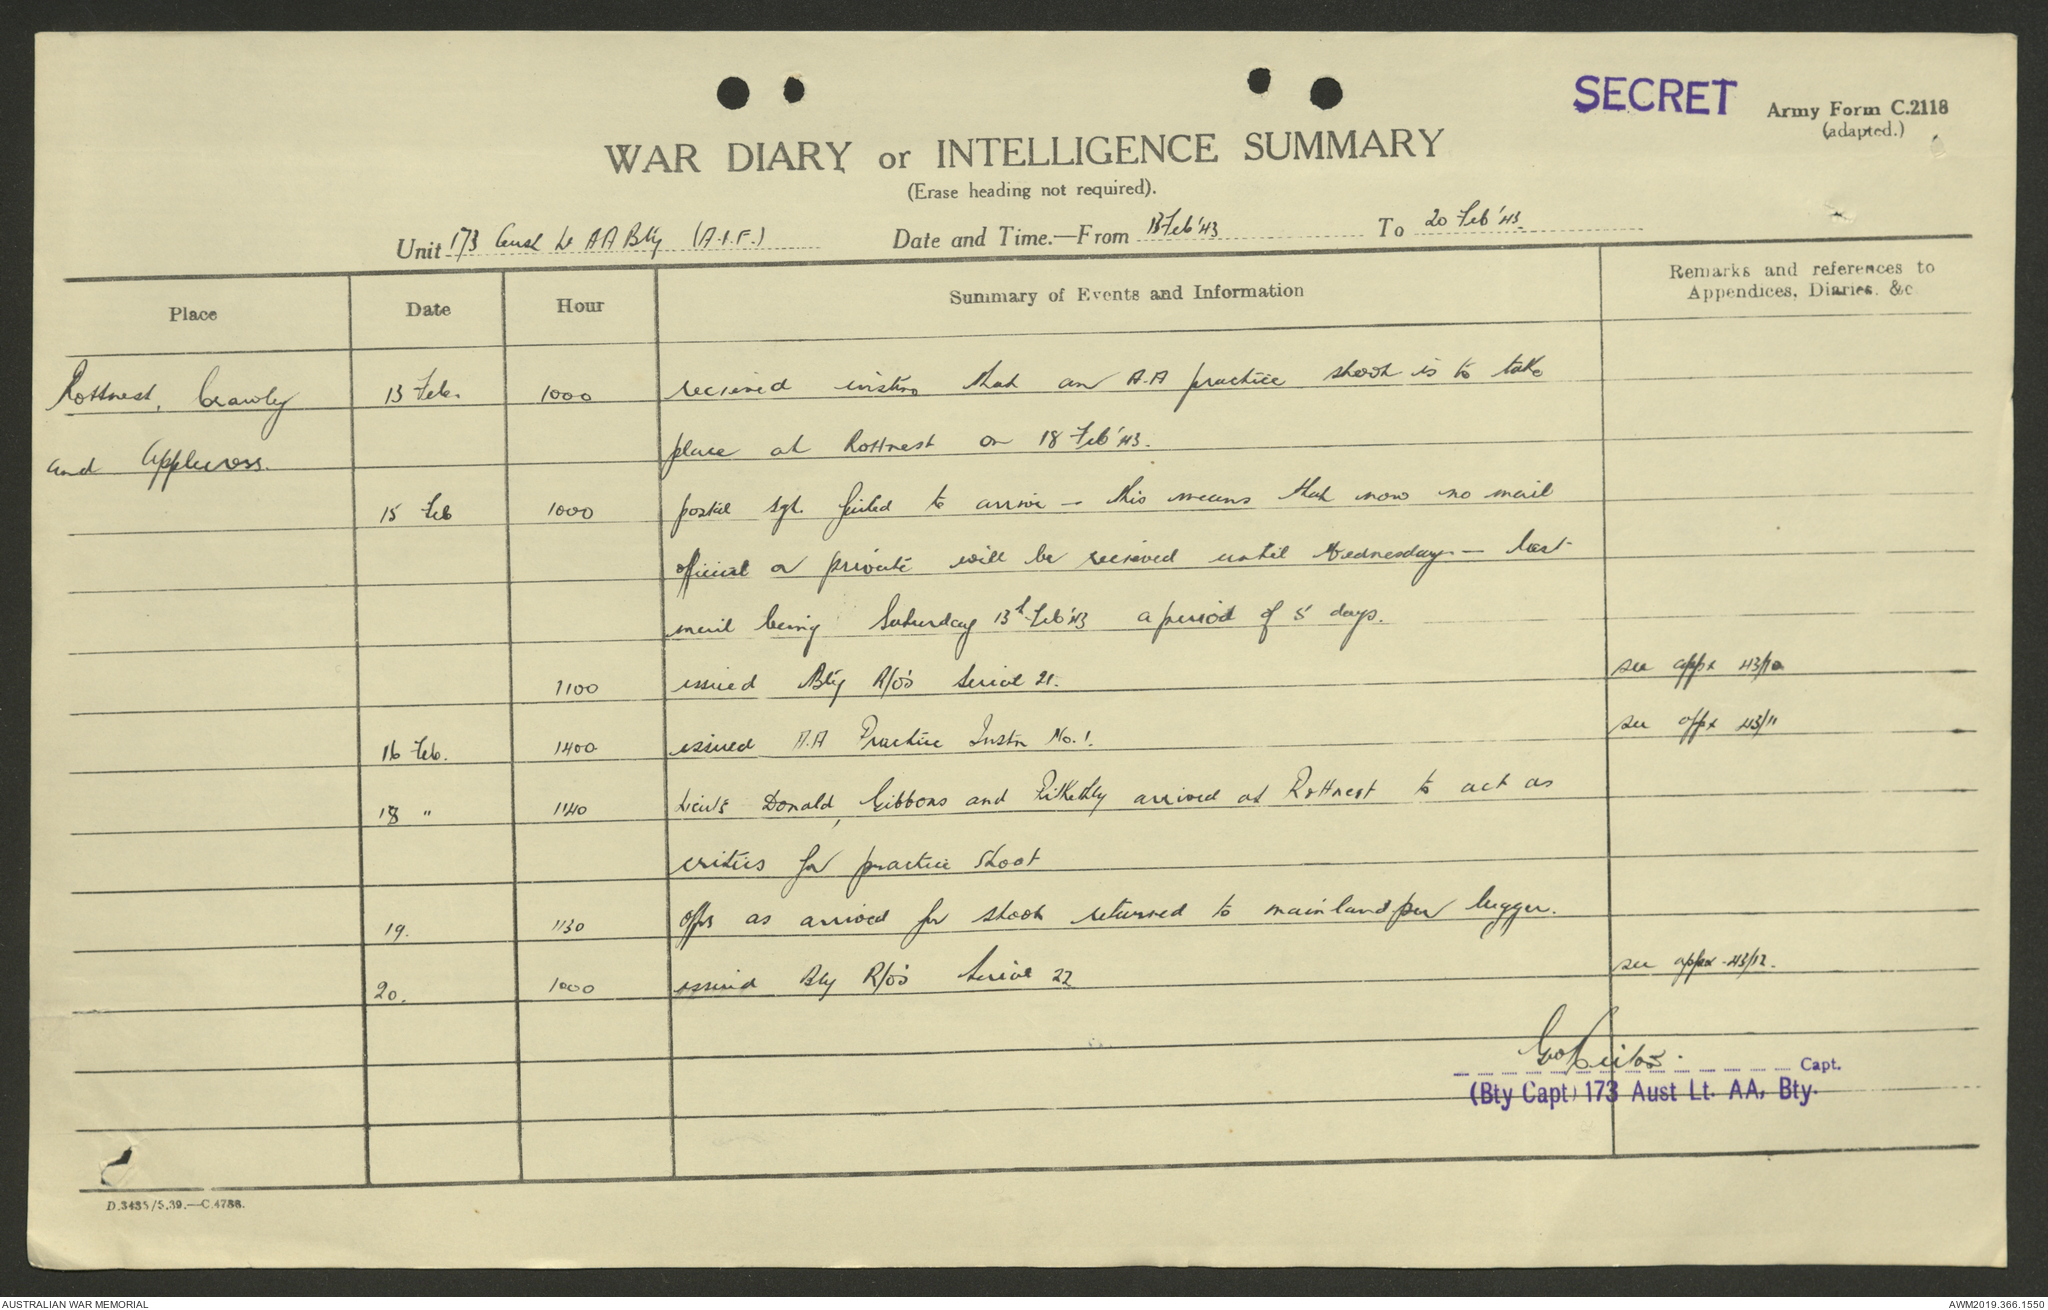 SECRET
Army Form C.2118
(adapted.)
WAR DIARY or INTELLIGENCE SUMMARY
(Erase heading not required).
Unit 173 Aust Lt AA Bty (A.I.F.) Date and Time.—From 13 Feb '43 To 20 Feb '43.
Place Date Hour Summary of Events and Information Remarks and references to Appendices, Diaries, &c.
Rottnest, Crawly 13 Feb. 1000 recieved instns that an A.A practice shoot is to take
and Applecross. place at Rottnest on 18 Feb '43.
15 Feb 1000 postal Sgt. failed to arrive – this means that now no mail
official or private will be recieved until Wednesday – last
mail being Saturday 13th Feb '43 a period of 5 days.
1100 issued Bty R/O's Serial 21. see appx 43/10
16 Feb. 1400 issued A.A Practice Instn No. 1. see appx 43/11
18 " 1140 Lieuts Donald, Gibbons and Pitkethly arrived at Rottnest to act as
critics for practice shoot
19. 1130 offrs as arrived for shoot returned to mainland per lugger.
20. 1000 issued Bty R/O's Serial 22 see appx 43/12.
Capt.
(Bty Capt) 173 Aust Lt. AA, Bty.
D.3435/5.39.—C.4788.
AUSTRALIAN WAR MEMORIAL AWM2019.366.1550